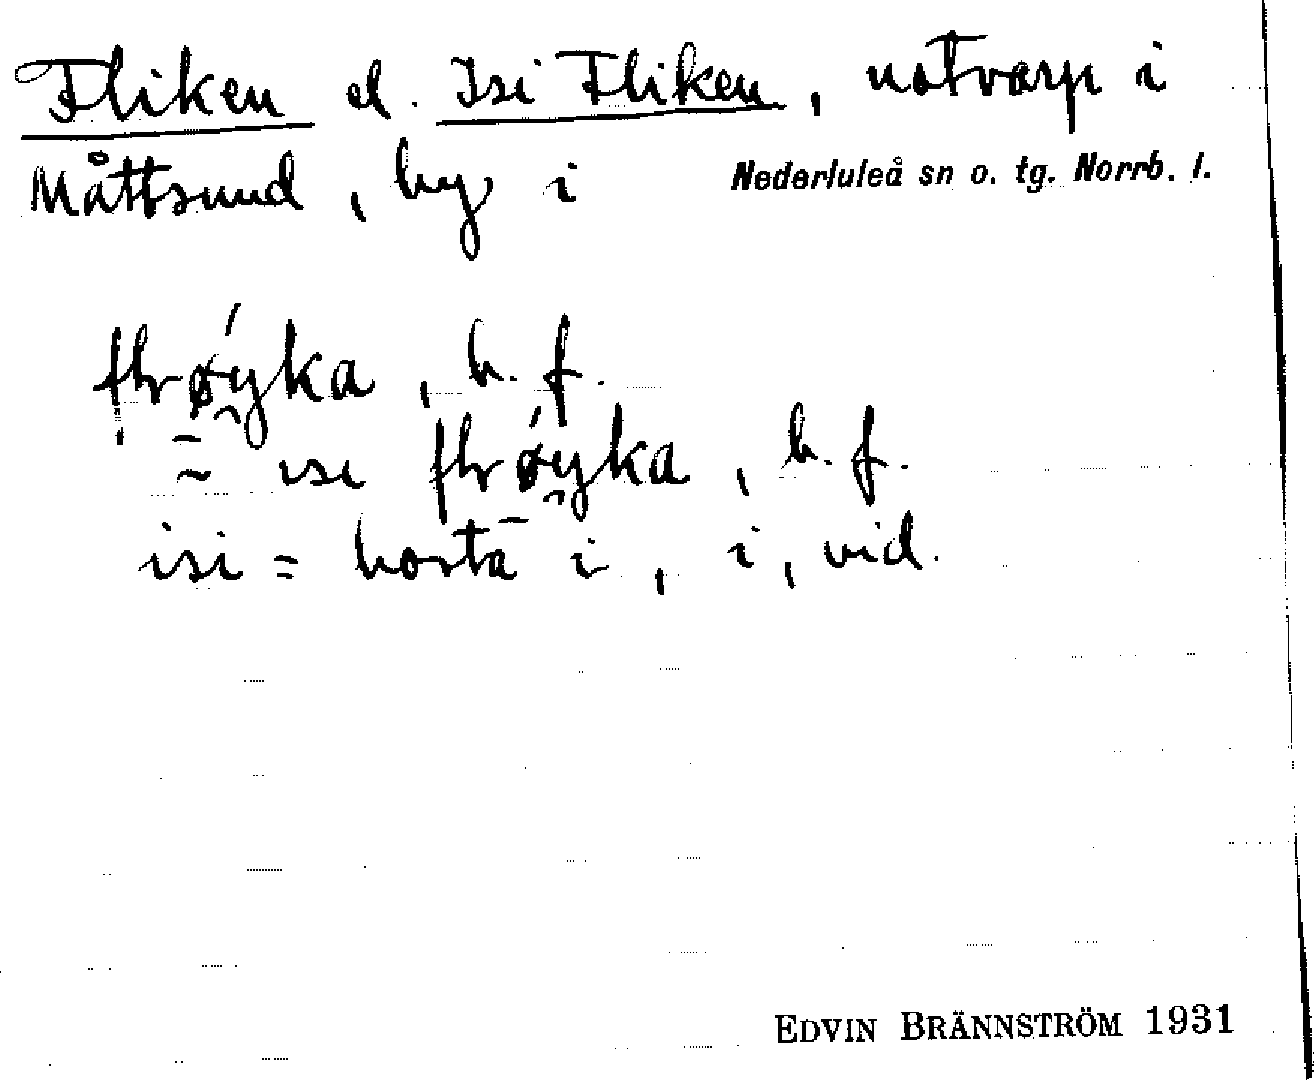 Fliken el. Isi Fliken, notvarp i
Måttsund, by i Nederluleå sn o. tg. Norrb. l.
b. f.
= isi b. f.
isi = borta i, i, vid.
EDVIN BRÄNNSTRÖM 1931